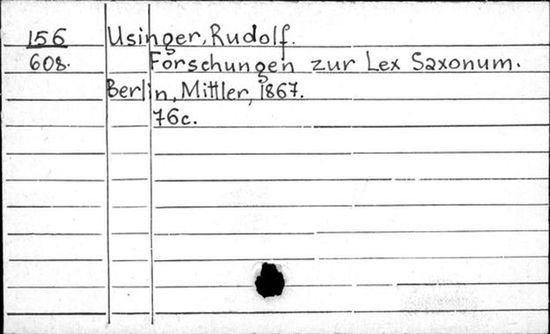 156 Usinger, Rudolf.
608. Forschungen zur Lex Saxonum.
Berlin, Mittler, 1867.
76c.